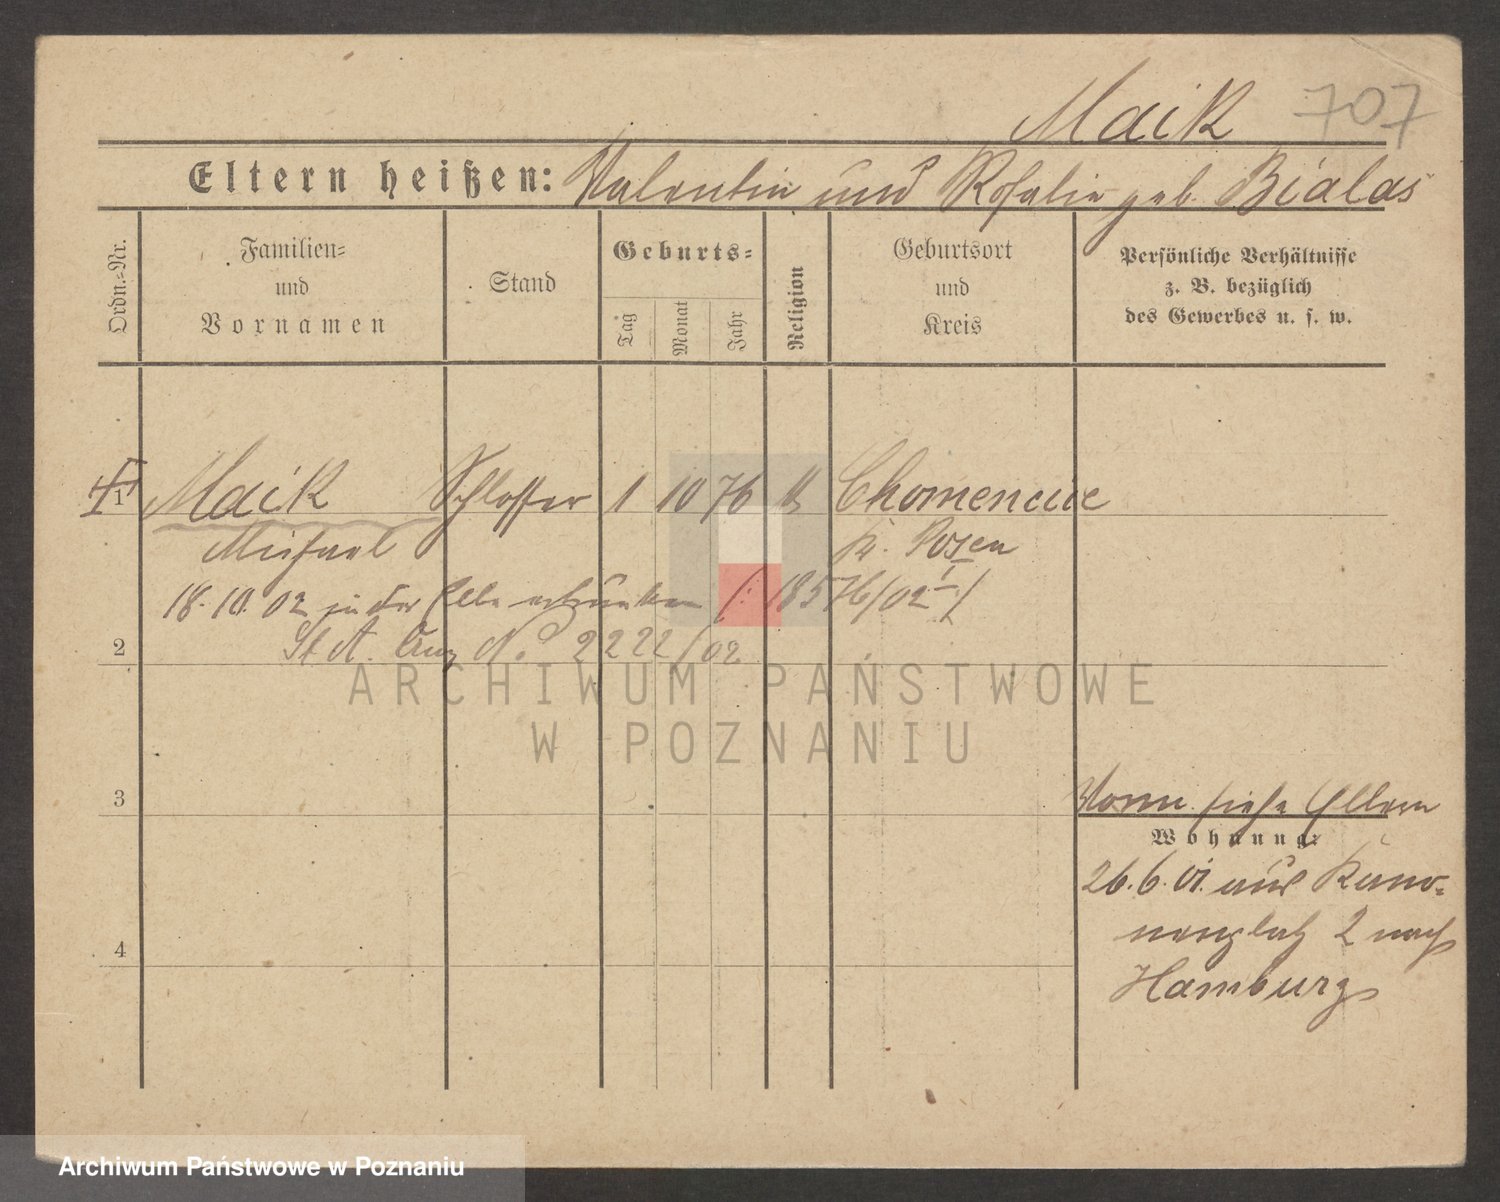 Maik 707
Eltern heißen: Valentin und Rosalie geb. Bialas
Ordn.-Nr.
Familien-
und
Vornamen
Stand
Geburts-
Tag
Monat
Jahr
Religion
Geburtsort
und
Kreis
Persönliche Verhältnisse
z. B. bezüglich
des Gewerbes u. s. w.
1 Maik Schlosser 1 10 76 k Chomencice
Michael Kr. Posen
18.10.02 in der Elbe ertrunken /: 18576/02 I /
St A. Anz N. 2222/02
2
ARCHIWUM PAŃSTWOWE
W POZNANIU
3
Vorm. siehe Eltern
Wohnung:
26.6.01. aus Kano-
nenplatz 2 nach
4
Hamburg
Archiwum Państwowe w Poznaniu